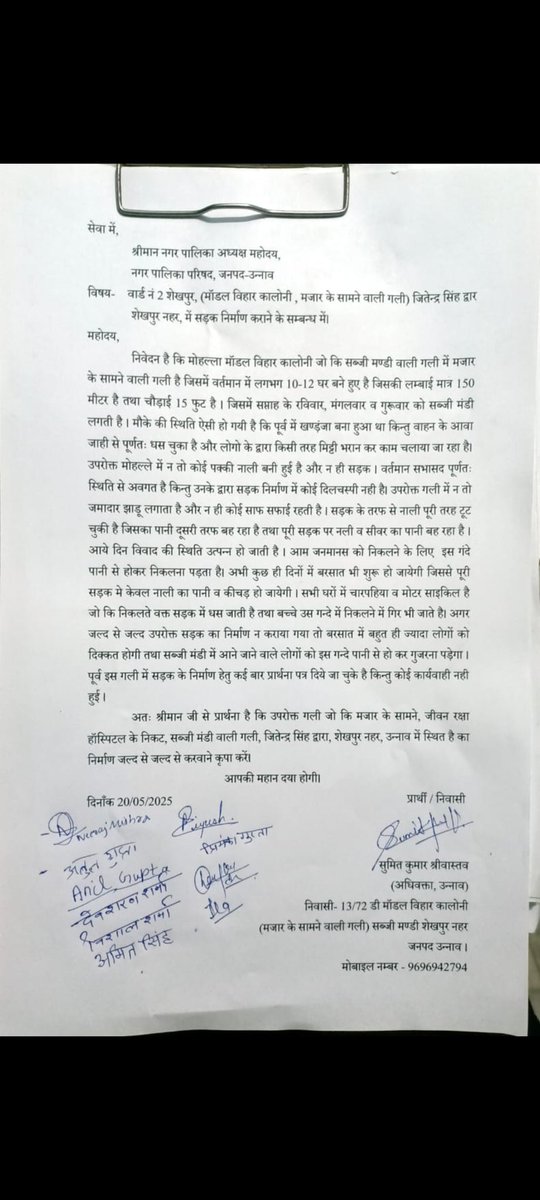 सेवा में,
श्रीमान नगर पालिका अध्यक्ष महोदय,
नगर पालिका परिषद, जनपद-उन्नाव
विषय- वार्ड नं 2 शेखपुर, (मॉडल विहार कालोनी , मजार के सामने वाली गली) जितेन्द्र सिंह द्वार
शेखपुर नहर, में सड़क निर्माण कराने के सम्बन्ध में।
महोदय,
निवेदन है कि मोहल्ला मॉडल विहार कालोनी जो कि सब्जी मण्डी वाली गली में मजार
के सामने वाली गली है जिसमें वर्तमान में लगभग 10-12 घर बने हुए है जिसकी लम्बाई मात्र 150
मीटर है तथा चौड़ाई 15 फुट है । जिसमें सप्ताह के रविवार, मंगलवार व गुरूवार को सब्जी मंडी
लगती है । मौके की स्थिति ऐसी हो गयी है कि पूर्व में खण्ड़ंजा बना हुआ था किन्तु वाहन के आवा
जाही से पूर्णतः धस चुका है और लोगो के द्वारा किसी तरह मिट्टी भरान कर काम चलाया जा रहा है।
उपरोक्त मोहल्ले में न तो कोई पक्की नाली बनी हुई है और न ही सड़क । वर्तमान सभासद पूर्णतः
स्थिति से अवगत है किन्तु उनके द्वारा सड़क निर्माण में कोई दिलचस्पी नही है। उपरोक्त गली में न तो
जमादार झाडू लगाता है और न ही कोई साफ सफाई रहती है । सड़क के तरफ से नाली पूरी तरह टूट
चुकी है जिसका पानी दूसरी तरफ बह रहा है तथा पूरी सड़क पर नली व सीवर का पानी बह रहा है ।
आये दिन विवाद की स्थिति उत्पन्न हो जाती है । आम जनमानस को निकलने के लिए इस गंदे
पानी से होकर निकलना पड़ता है। अभी कुछ ही दिनों में बरसात भी शुरू हो जायेगी जिससे पूरी
सड़क मे केवल नाली का पानी व कीचड़ हो जायेगा । सभी घरों में चारपहिया व मोटर साइकिल है
जो कि निकलते वक्त सड़क में धस जाती है तथा बच्चे उस गन्दे में निकलने में गिर भी जाते है। अगर
जल्द से जल्द उपरोक्त सड़क का निर्माण न कराया गया तो बरसात में बहुत ही ज्यादा लोगों को
दिक्कत होगी तथा सब्जी मंडी में आने जाने वाले लोगों को इस गन्दे पानी से हो कर गुजरना पड़ेगा ।
पूर्व इस गली में सड़क के निर्माण हेतु कई बार प्रार्थना पत्र दिये जा चुके है किन्तु कोई कार्यवाही नही
हुई ।
अतः श्रीमान जी से प्रार्थना है कि उपरोक्त गली जो कि मजार के सामने, जीवन रक्षा
हॉस्पिटल के निकट, सब्जी मंडी वाली गली, जितेन्द्र सिंह द्वारा, शेखपुर नहर, उन्नाव में स्थित है का
निर्माण जल्द से जल्द से करवाने कृपा करें।
आपकी महान दया होगी।
दिनाँक 20/05/2025 प्रार्थी / निवासी
Neeraj Mishra Piyush
प्रियंका गुप्ता
Anil Gupta
देवशरन शर्मा
विशाल शर्मा
अमित सिंह
सुमित कुमार श्रीवास्तव
(अधिवक्ता, उन्नाव)
निवासी- 13/72 डी मॉडल विहार कालोनी
(मजार के सामने वाली गली) सब्जी मण्डी शेखपुर नहर
जनपद उन्नाव ।
मोबाइल नम्बर - 9696942794